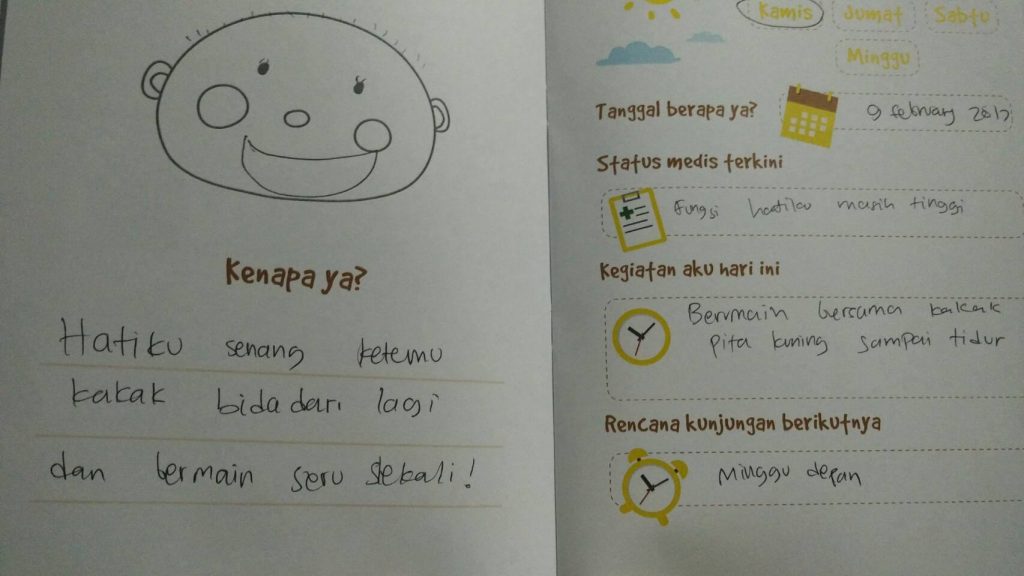 Kenapa ya?
Hatiku senang ketemu
kakak bidadari lagi
dan bermain seru sekali!
Kamis Jumat Sabtu
Minggu
Tanggal berapa ya?
9 february 2017
Status medis terkini
Fungsi hatiku masih tinggi
Kegiatan aku hari ini
Bermain bersama kakak
pita kuning sampai tidur
Rencana kunjungan berikutnya
Minggu depan